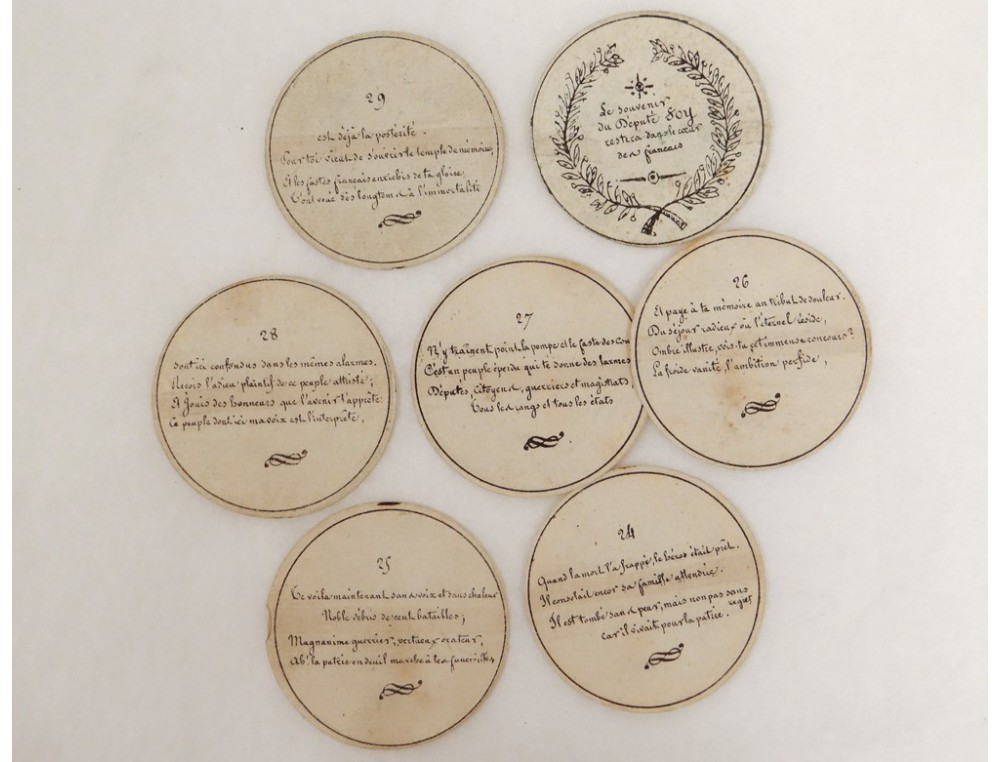 29
est déjà la postérité.
Pour toi vient de s'ouvrir le temple de mémoire,
Et les fastes français enrichis de ta gloire,
T'ont voué dès longtems à l'immortalité
Le souvenir
du Député Foy
restera dans le cœur
des français
28
sont ici confondus dans les mêmes alarmes.
Reçois l'adieu plaintif de ce peuple attristé;
Et Jouis des honneurs que l'avenir t'apprête:
Ce peuple dont ici ma voix est l'interprête,
27
N'y traînent point la pompe et le faste des Cou
C'est un peuple éperdu qui te donne des larmes
Députés, citoyens, guerriers et magistrats
Tous les rangs et tous les états
26
Et paye à ta mémoire un tribut de douleur.
Du séjour radieux où l'éternel réside,
Ombre illustre, vois-tu cet immense concours?
La froide vanité, l'ambition perfide,
25
Te voilà maintenant sans voix et sans chaleur
Noble débris de cent batailles;
Magnanime guerrier, vertueux orateur,
Ah! la patrie en deuil marche à tes funérailles,
24
Quand la mort l'a frappé, le héros était prêt.
Il consolait encor sa famille attendrie.
Il est tombé sans peur, mais non pas sans
regret
car il vivait pour la patrie.